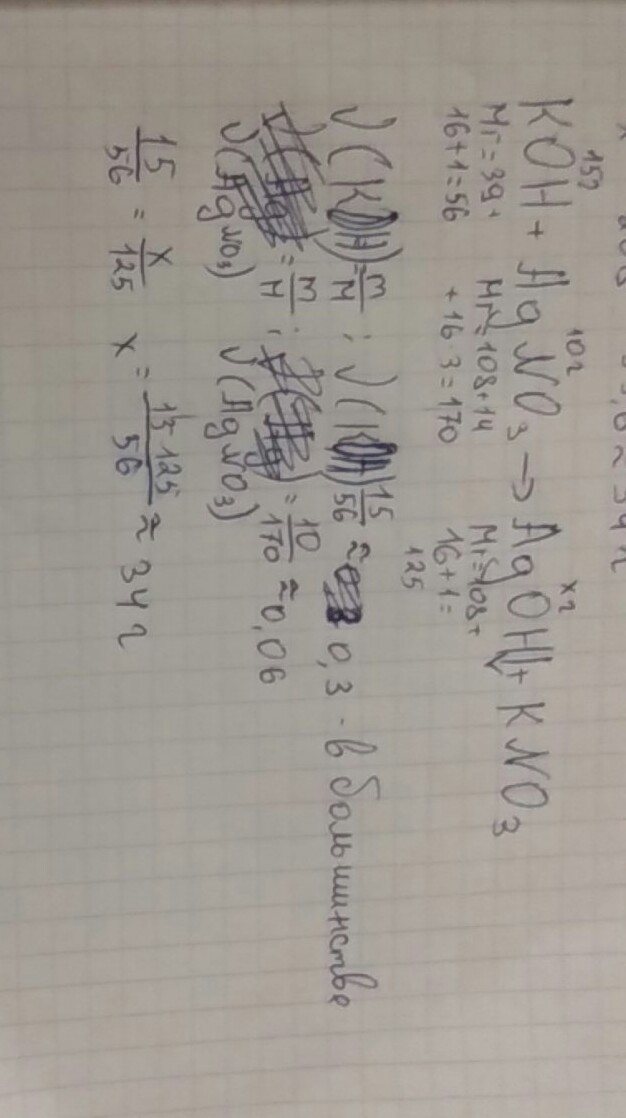 15г 10г xг
KOH + AgNO₃ → AgOH↓ + KNO₃
Mr=39+ Mr=108+14 Mr=108+
16+1=56 +16·3=170 16+1=
125
ν(KOH)=m/M; ν(KOH) 15/56 ≈ 0,3 - в большинстве
ν(AgNO₃)=m/M; ν(AgNO₃)=10/170≈0,06
15/56 = x/125 x = 15·125/56 ≈ 34 г